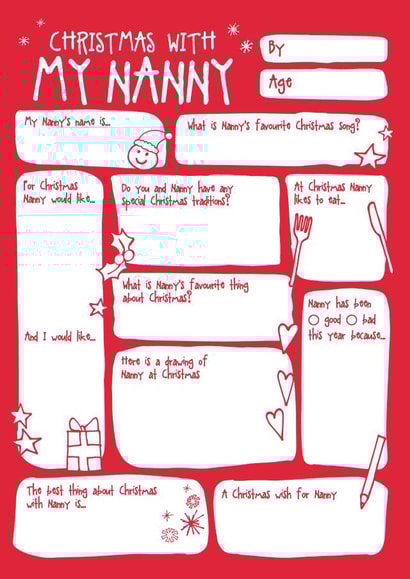 CHRISTMAS WITH
MY NANNY
By
Age
My Nanny's name is...
What is Nanny's favourite Christmas song?
For Christmas
Nanny would like...
And I would like...
Do you and Nanny have any
special Christmas traditions?
At Christmas Nanny
likes to eat...
What is Nanny's favourite thing
about Christmas?
Nanny has been
good bad
this year because...
Here is a drawing of
Nanny at Christmas
The best thing about Christmas
with Nanny is...
A Christmas wish for Nanny